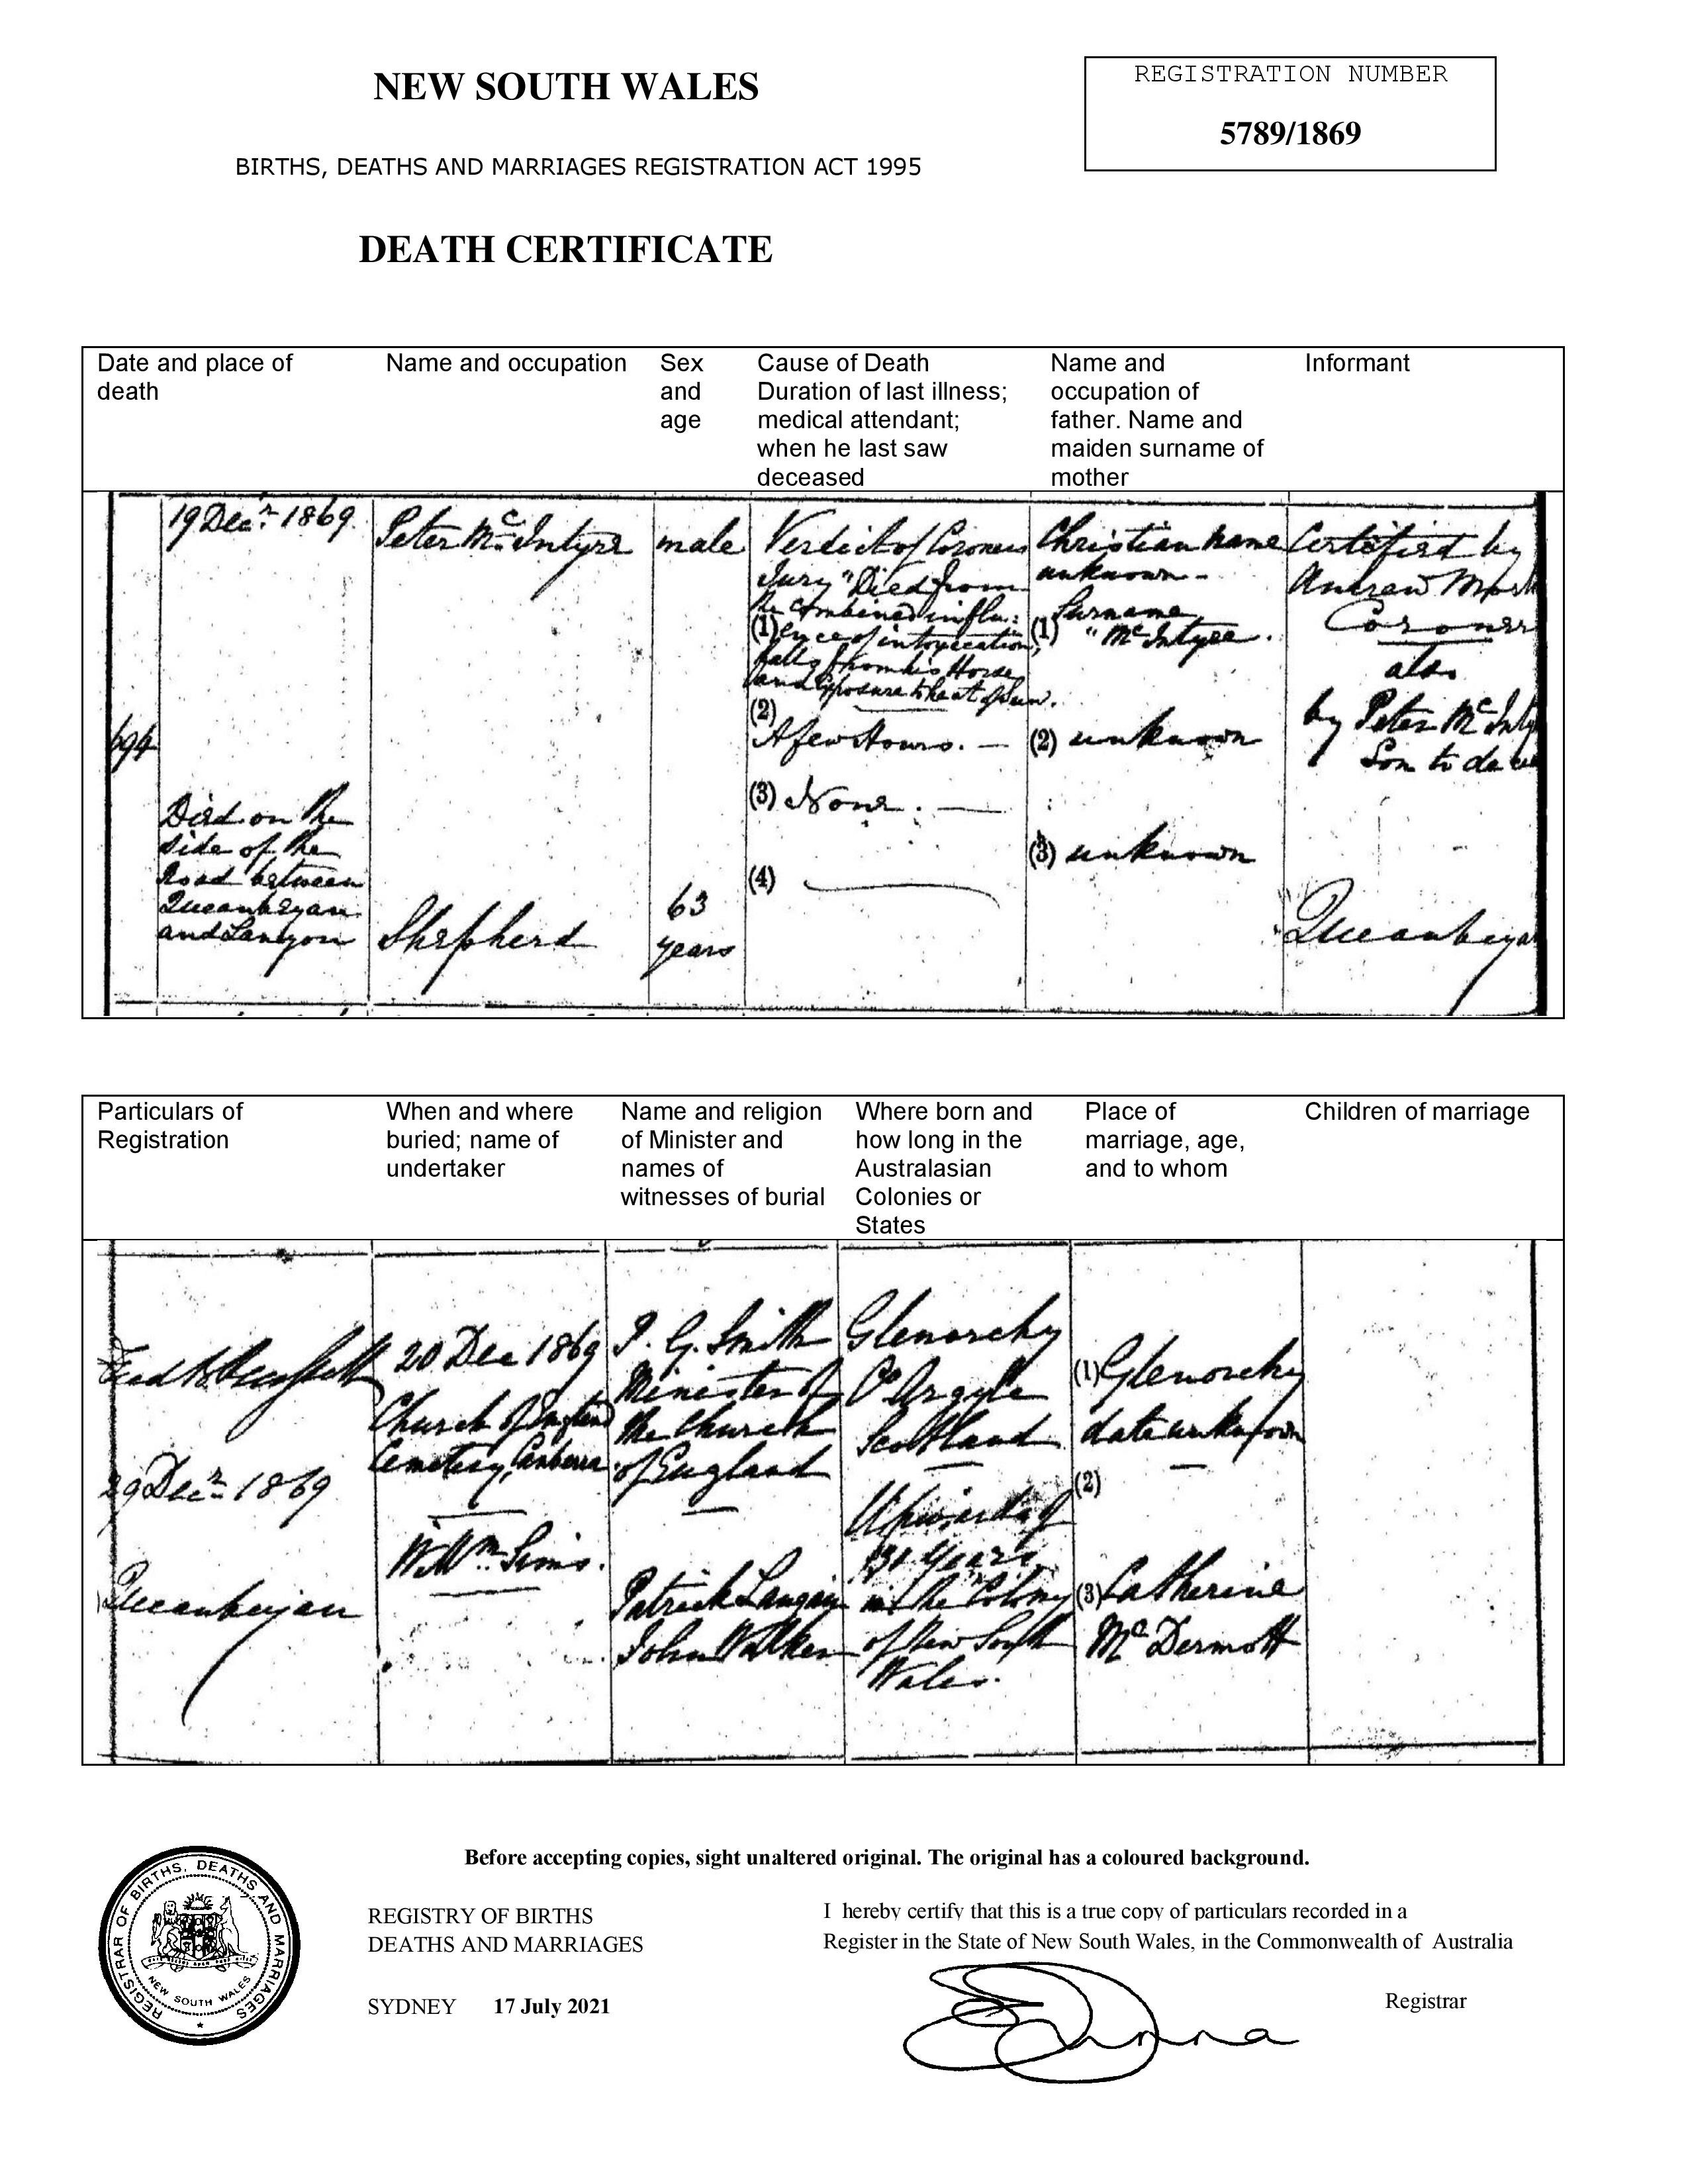 NEW SOUTH WALES
REGISTRATION NUMBER
5789/1869
BIRTHS, DEATHS AND MARRIAGES REGISTRATION ACT 1995
DEATH CERTIFICATE
Date and place of
death
Name and occupation
Sex
and
age
Cause of Death
Duration of last illness;
medical attendant;
when he last saw
deceased
Name and
occupation of
father. Name and
maiden surname of
mother
Informant
694
19 Decr. 1869.
Died on the
side of the
Road between
Queanbeyan
and Lanyon
Peter McIntyre
Shepherd
male
63
years
Verdict of Coroners
Jury "Died from
the combined influ:
(1) ence of intoxication,
falls from his Horse
and exposure to heat of sun.
(2)
A few Hours. —
(3) None. —
(4)
Christian name
unknown -
Surname
(1) "McIntyre.
(2) unknown
(3) unknown
Certified by
Andrew
Coroner
also
by Peter McInty
Son to
Queanbeya
Particulars of
Registration
When and where
buried; name of
undertaker
Name and religion
of Minister and
names of
witnesses of burial
Where born and
how long in the
Australasian
Colonies or
States
Place of
marriage, age,
and to whom
Children of marriage
29 Decr. 1869
Queanbeyan
20 Dec 1869
Church of England
Cemetery, Canberra.
Wm. Sims.
P. G. Smith
Minister of
the Church
of England
Patrick
John Walker
Glenorchy
Co Argyle
Scotland
Upwards of
31 Years
in the Colony
of New South
Wales.
(1) Glenorchy
date unknown
(2)
(3) Catherine
McDermott
Before accepting copies, sight unaltered original. The original has a coloured background.
REGISTRAR OF BIRTHS, DEATHS AND MARRIAGES
NEW SOUTH WALES
REGISTRY OF BIRTHS
DEATHS AND MARRIAGES
SYDNEY 17 July 2021
I hereby certify that this is a true copy of particulars recorded in a
Register in the State of New South Wales, in the Commonwealth of Australia
Registrar